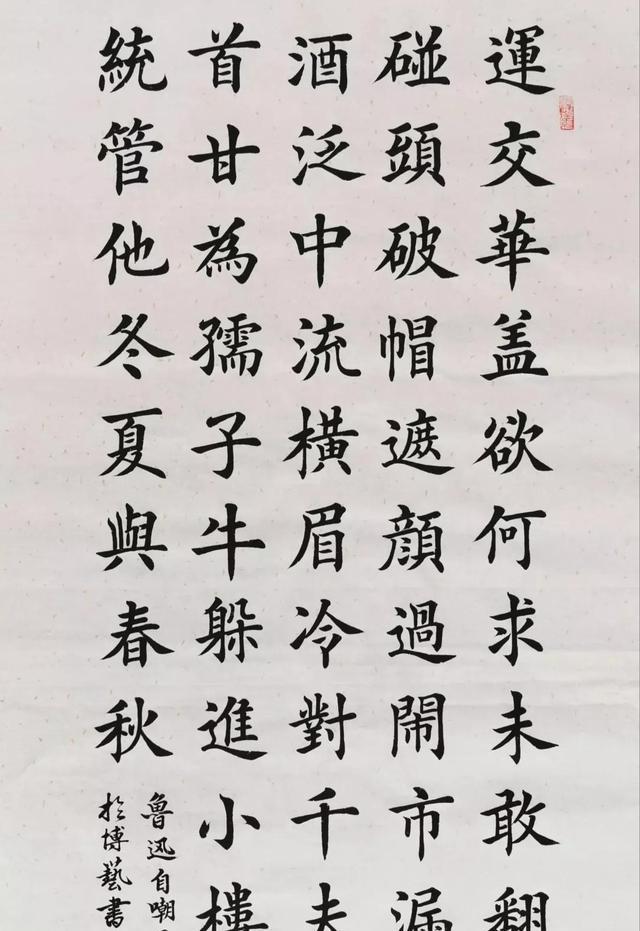 運交華盖欲何求未敢翻
碰頭破帽遮顔過鬧市漏
酒泛中流橫眉冷對千夫
首甘為孺子牛躲進小樓
統管他冬夏與春秋
魯迅自嘲
於博藝書